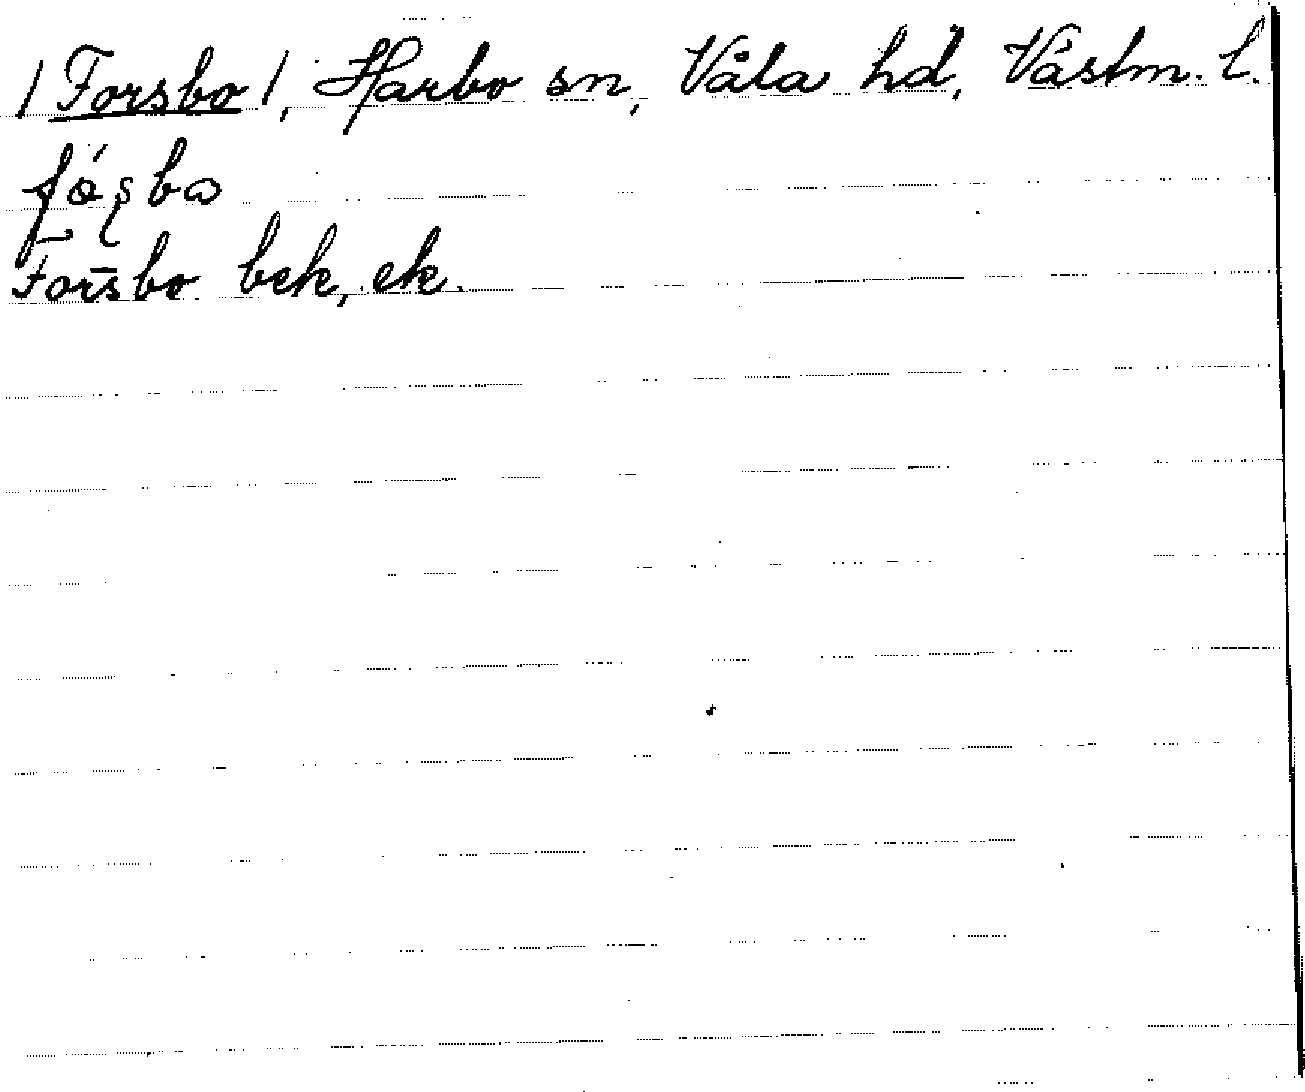 /Forsbo/, Harbo sn, Våla hd, Västm. l.
fó̱ʂbo
Forsbo bek, ek.